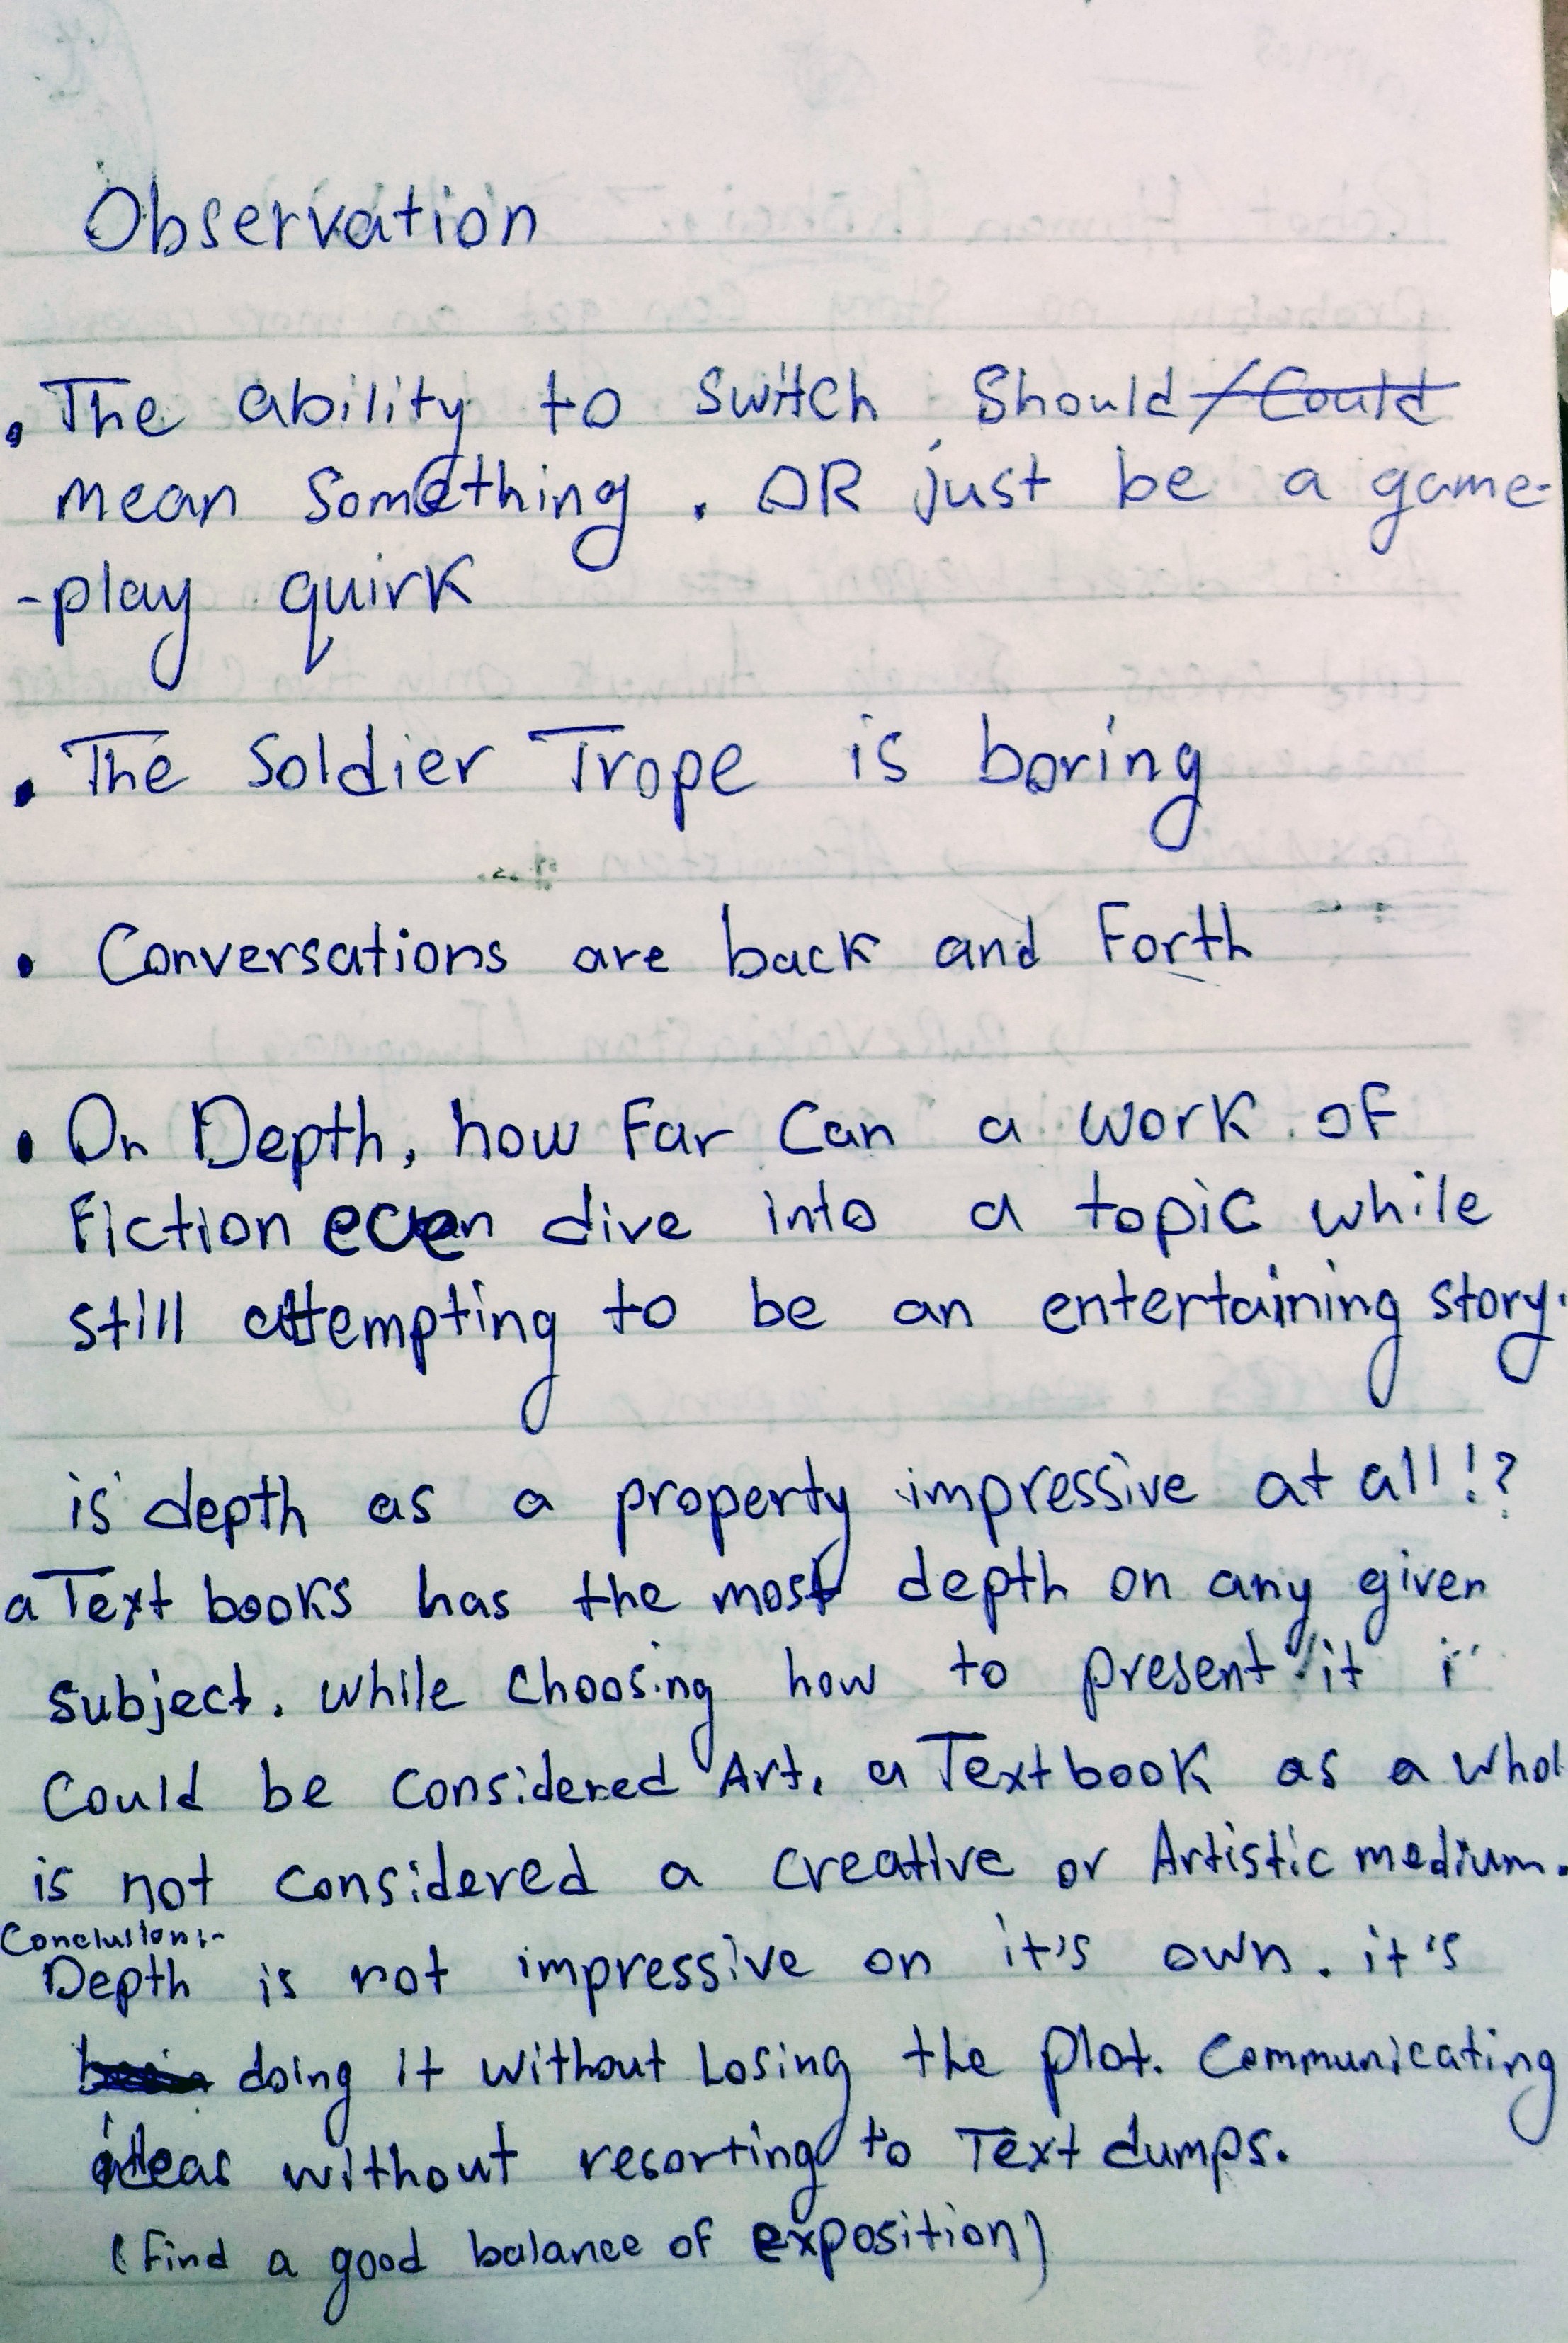 Observation
. The ability to switch Should/Could
mean something . OR just be a game-
-play quirk
. The Soldier Trope is boring
• Conversations are back and Forth
• On Depth, how Far Can a work of
Fiction even dive into a topic while
still attempting to be an entertaining story.
is depth as a property impressive at all!?
a Text books has the most depth on any given
subject. while choosing how to present it
Could be considered Art. a Textbook as a whol
is not considered a creative or Artistic medium.
Conclusion:-
Depth is not impressive on it's own. it's
doing it without Losing the plot. Communicating
ideas without resorting to Text dumps.
(Find a good balance of exposition)